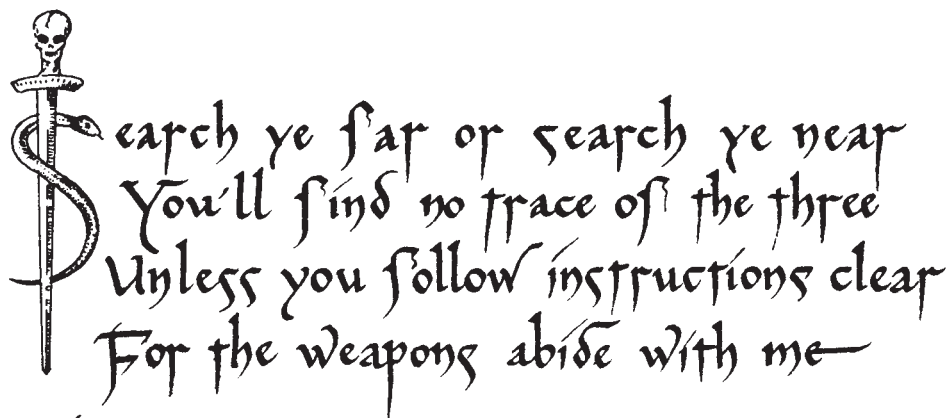 Search ye far or search ye near
You'll find no trace of the three
Unless you follow instructions clear
For the weapons abide with me